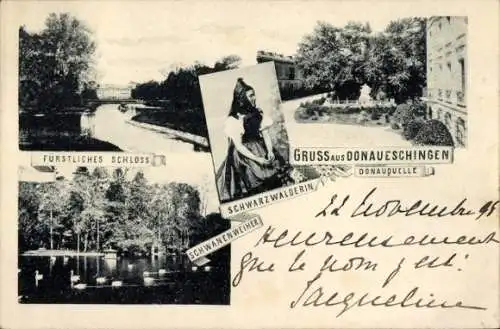 FÜRSTLICHES SCHLOSS
GRUSS AUS DONAUESCHINGEN
DONAUQUELLE
SCHWARZWÄLDERIN
SCHWANENWEIHER
22 Novembre 98
Heureusement
que le nom y est!
Jacqueline